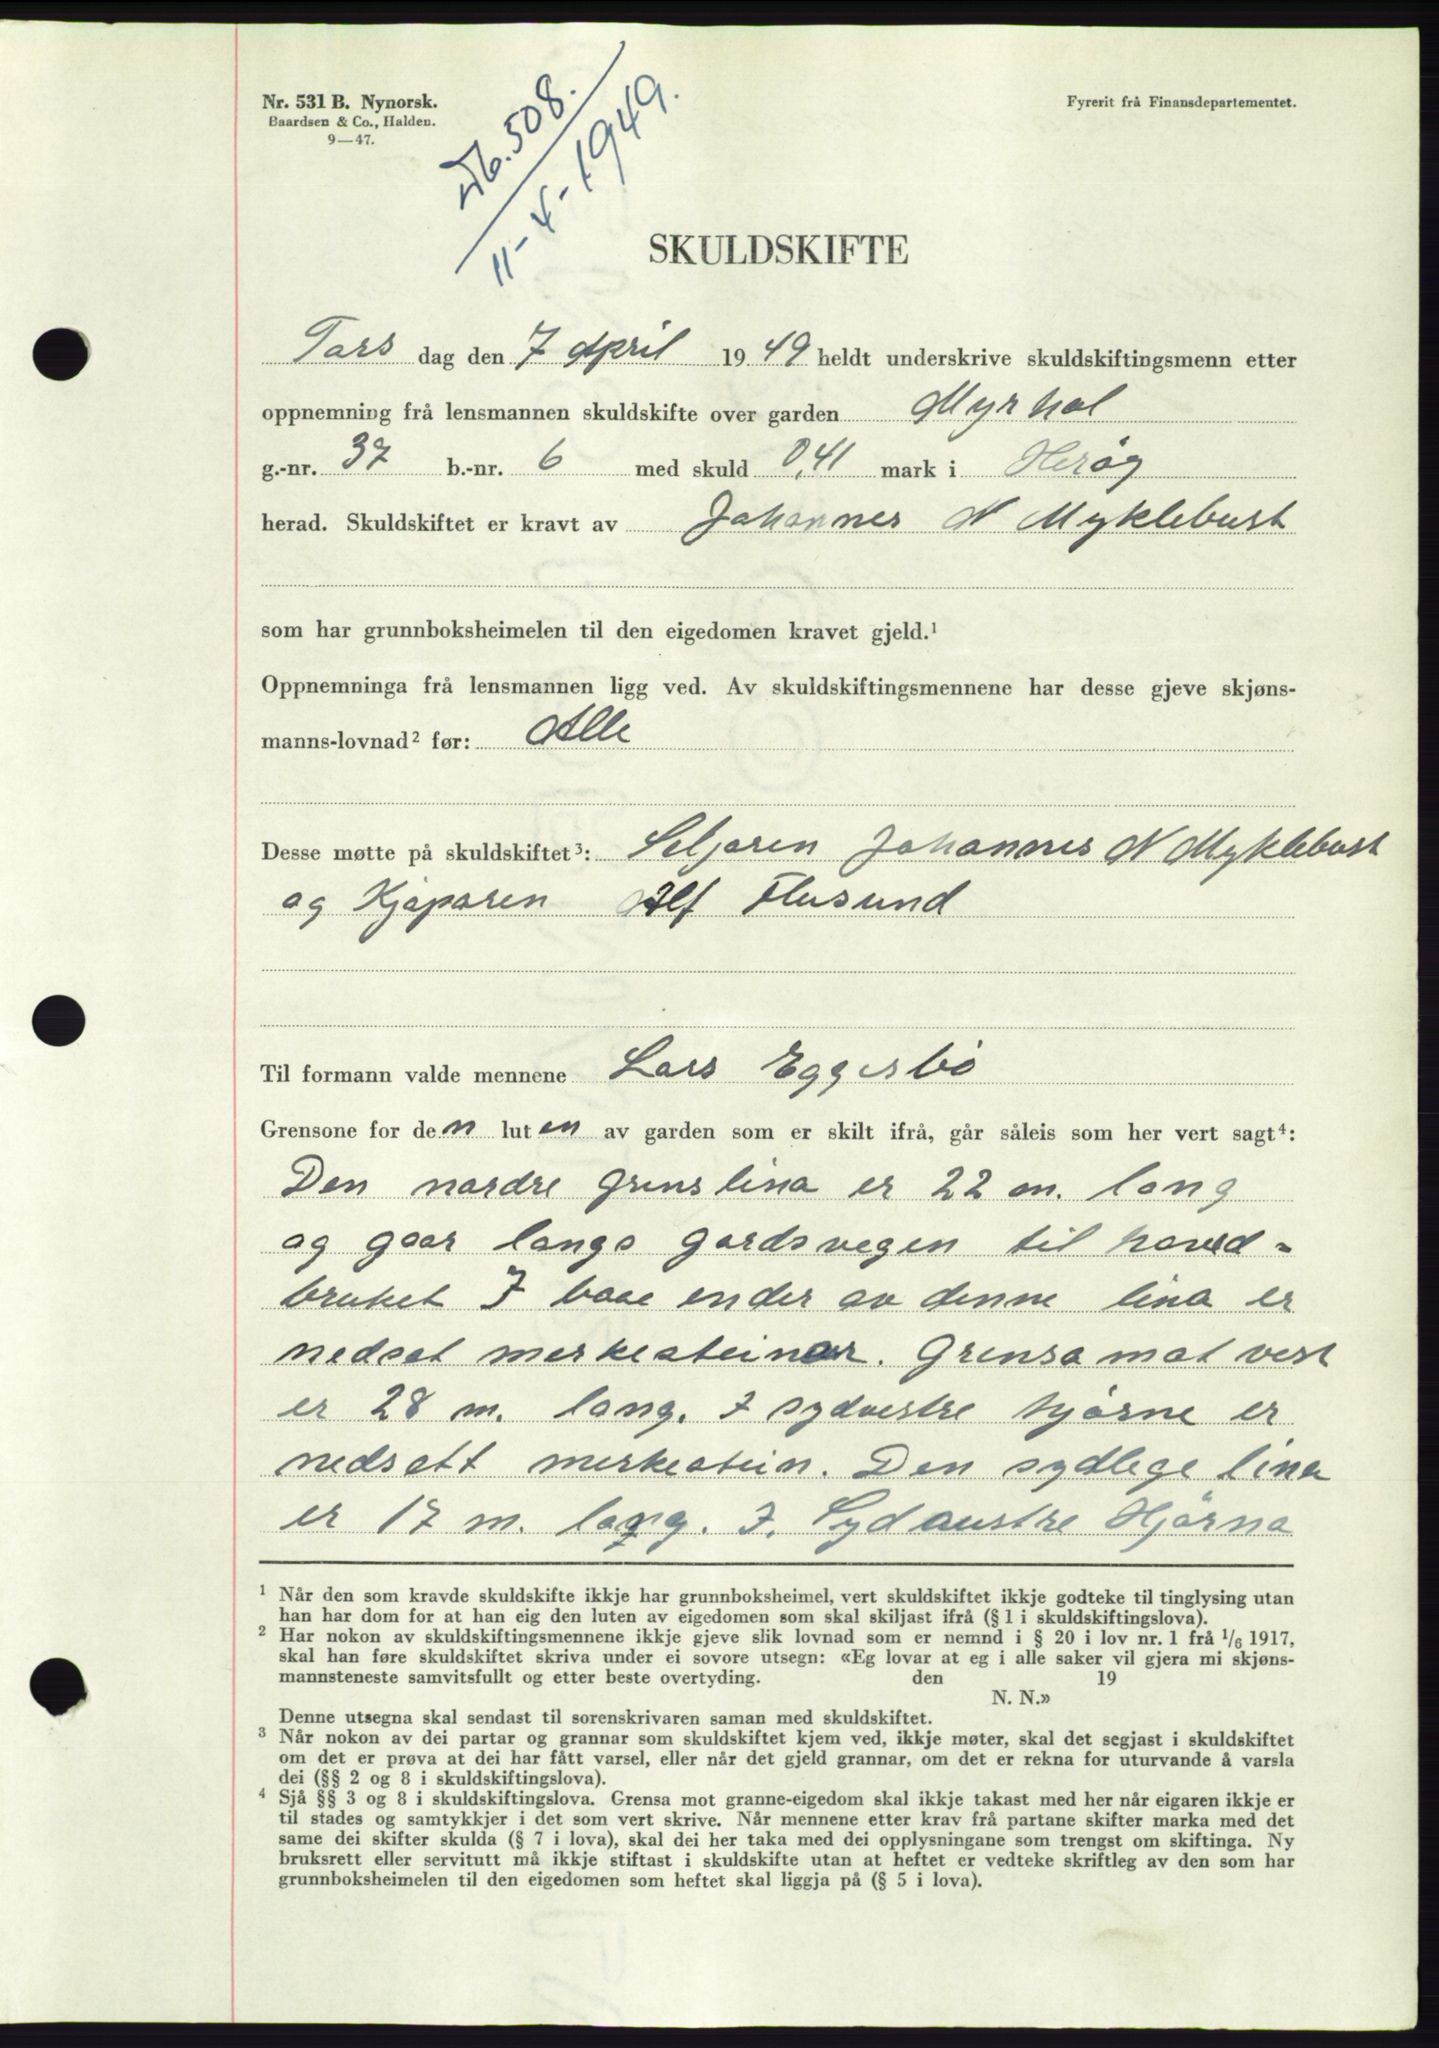 Nr. 531 B. Nynorsk.
Baardsen & Co., Halden.
9—47.
Fyrerit frå Finansdepartementet.
Nb. 508.
11-4-1949.
SKULDSKIFTE
Tors dag den 7 April 1949 heldt underskrive skuldskiftingsmenn etter
oppnemning frå lensmannen skuldskifte over garden Myrhol
g.-nr. 37 b.-nr. 6 med skuld 0,41 mark i Herøy
herad. Skuldskiftet er kravt av Johannes N Myklebust
som har grunnboksheimelen til den eigedomen kravet gjeld.¹
Oppnemninga frå lensmannen ligg ved. Av skuldskiftingsmennene har desse gjeve skjøns-
manns-lovnad² før: Alle
Desse møtte på skuldskiftet³: Seljaren Johannes N Myklebust
og Kjøparen Alf Flusund
Til formann valde mennene Lars Eggesbø
Grensone for den luten av garden som er skilt ifrå, går såleis som her vert sagt⁴:
Den nordre grenslina er 22 m. lang
og gaar langs gardsvegen til hoved-
bruket I baae ender av denne lina er
nedsat merkesteinar. Grensa mot vest
er 28 m. lang. I sydvestre hjørne er
nedsatt merkestein. Den sydlege lina
er 17 m. lang. I. Sydaustre Hjørna
¹ Når den som kravde skuldskifte ikkje har grunnboksheimel, vert skuldskiftet ikkje godteke til tinglysing utan
han har dom for at han eig den luten av eigedomen som skal skiljast ifrå (§ 1 i skuldskiftingslova).
² Har nokon av skuldskiftingsmennene ikkje gjeve slik lovnad som er nemnd i § 20 i lov nr. 1 frå 1/6 1917,
skal han føre skuldskiftet skriva under ei sovore utsegn: «Eg lovar at eg i alle saker vil gjera mi skjøns-
mannsteneste samvitsfullt og etter beste overtyding. den 19
N. N.»
Denne utsegna skal sendast til sorenskrivaren saman med skuldskiftet.
³ Når nokon av dei partar og grannar som skuldskiftet kjem ved, ikkje møter, skal det segjast i skuldskiftet
om det er prøva at dei har fått varsel, eller når det gjeld grannar, om det er rekna for uturvande å varsla
dei (§§ 2 og 8 i skuldskiftingslova).
⁴ Sjå §§ 3 og 8 i skuldskiftingslova. Grensa mot granne-eigedom skal ikkje takast med her når eigaren ikkje er
til stades og samtykkjer i det som vert skrive. Når mennene etter krav frå partane skifter marka med det
same dei skifter skulda (§ 7 i lova), skal dei her taka med dei opplysningane som trengst om skiftinga. Ny
bruksrett eller servitutt må ikkje stiftast i skuldskifte utan at heftet er vedteke skriftleg av den som har
grunnboksheimelen til den eigedomen som heftet skal liggja på (§ 5 i lova).